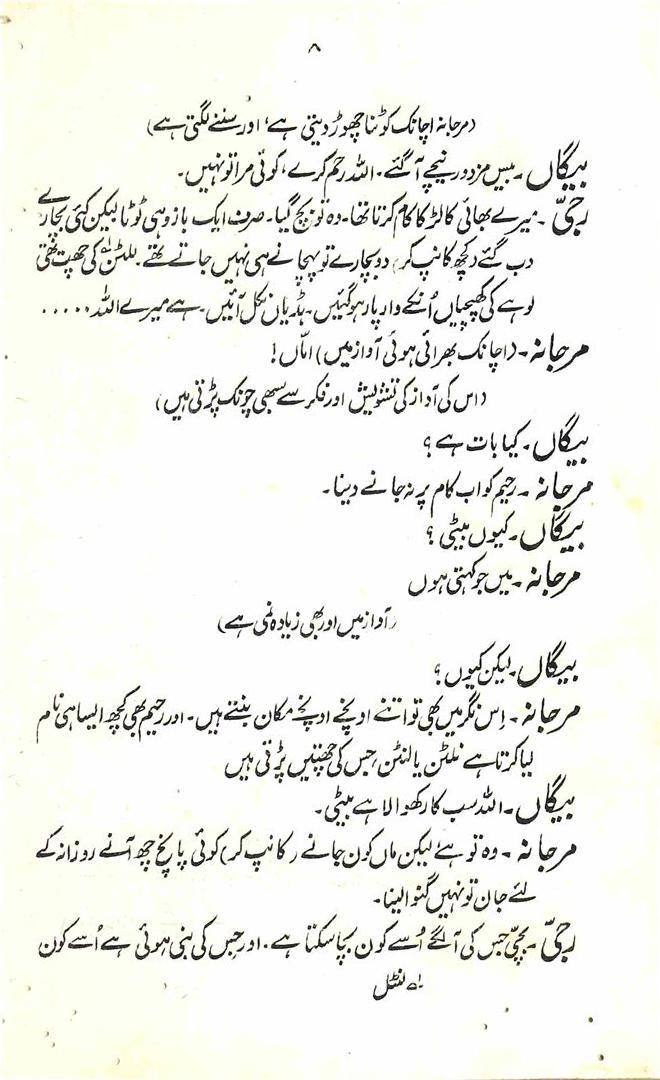 ۸
(مرجانہ اچانک کوٹنا چھوڑ دیتی ہے، اور سننے لگتی ہے)
بیگاں۔ بیس مزدور نیچے آگئے۔ اللہ رحم کرے، کوئی مرا تو نہیں۔
رجیّ۔ میرے بھائی کا لڑکا کام کرتا تھا۔ وہ تو بچ گیا۔ صرف ایک بازو ہی ٹوٹا لیکن کئی بچارے
دب گئے (کچھ کانپ کر) دو بچارے تو پہچانے ہی نہیں جاتے تھے۔ للٹن لہ کی چھت تھی
لوہے کی کھپچیاں اُنکے وار پار ہوگئیں۔ ہڈیاں نکل آئیں۔ ہے میرے اللہ .....
مرجانہ۔ (اچانک بھرائی ہوئی آواز میں) امّاں!
(اس کی آواز کی تشویش اور فکر سے سبھی چونک پڑتی ہیں)
بیگاں۔ کیا بات ہے؟
مرجانہ۔ رحیم کو اب کام پر نہ جانے دینا۔
بیگاں۔ کیوں بیٹی؟
مرجانہ۔ میں جو کہتی ہوں
(آواز میں اور بھی زیادہ نمی ہے)
بیگاں۔ لیکن کیوں؟
مرجانہ۔ اِس نگر میں بھی تو اتنے اونچے اونچے مکان بنتے ہیں۔ اور رحیم بھی کچھ ایسا ہی نام
لیا کرتا ہے للٹن یا لنٹن جس کی چھتیں پڑتی ہیں
بیگاں۔ اللہ سب کا رکھوالا ہے بیٹی۔
مرجانہ۔ وہ تو ہے لیکن ماں کون جانے (کانپ کر) کوئی پانچ چھ آنے روزانہ کے
لئے جان تو نہیں گنوا لینا۔
رجیّ۔ بچیّ جس کی آلگے اُسے کون بچا سکتا ہے۔ اور جس کی بنی ہوئی ہے اُسے کون
لہ لنٹل